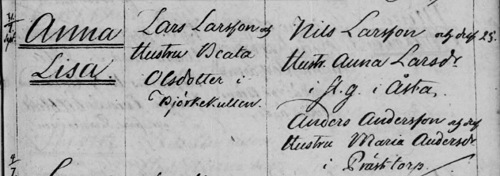 Anna
Lisa.
Lars Larsson og
Hustru Beata
Olsdotter i
Björkekullen.
Nils Larsson og dess 25.
Hustr. Anna Larsdr
i st.g. i Åsta,
Anders Andersson og
Hustru Maria Andersdr
i Prästtorp.